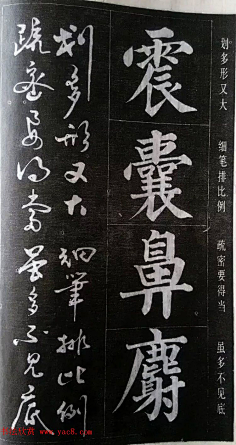 划多形又大 细笔排比例 疏密要得当 虽多不见底
震囊鼻麝
划多形又大 細筆排比例
疏密要得當 雖多不見底
www.yac8.com